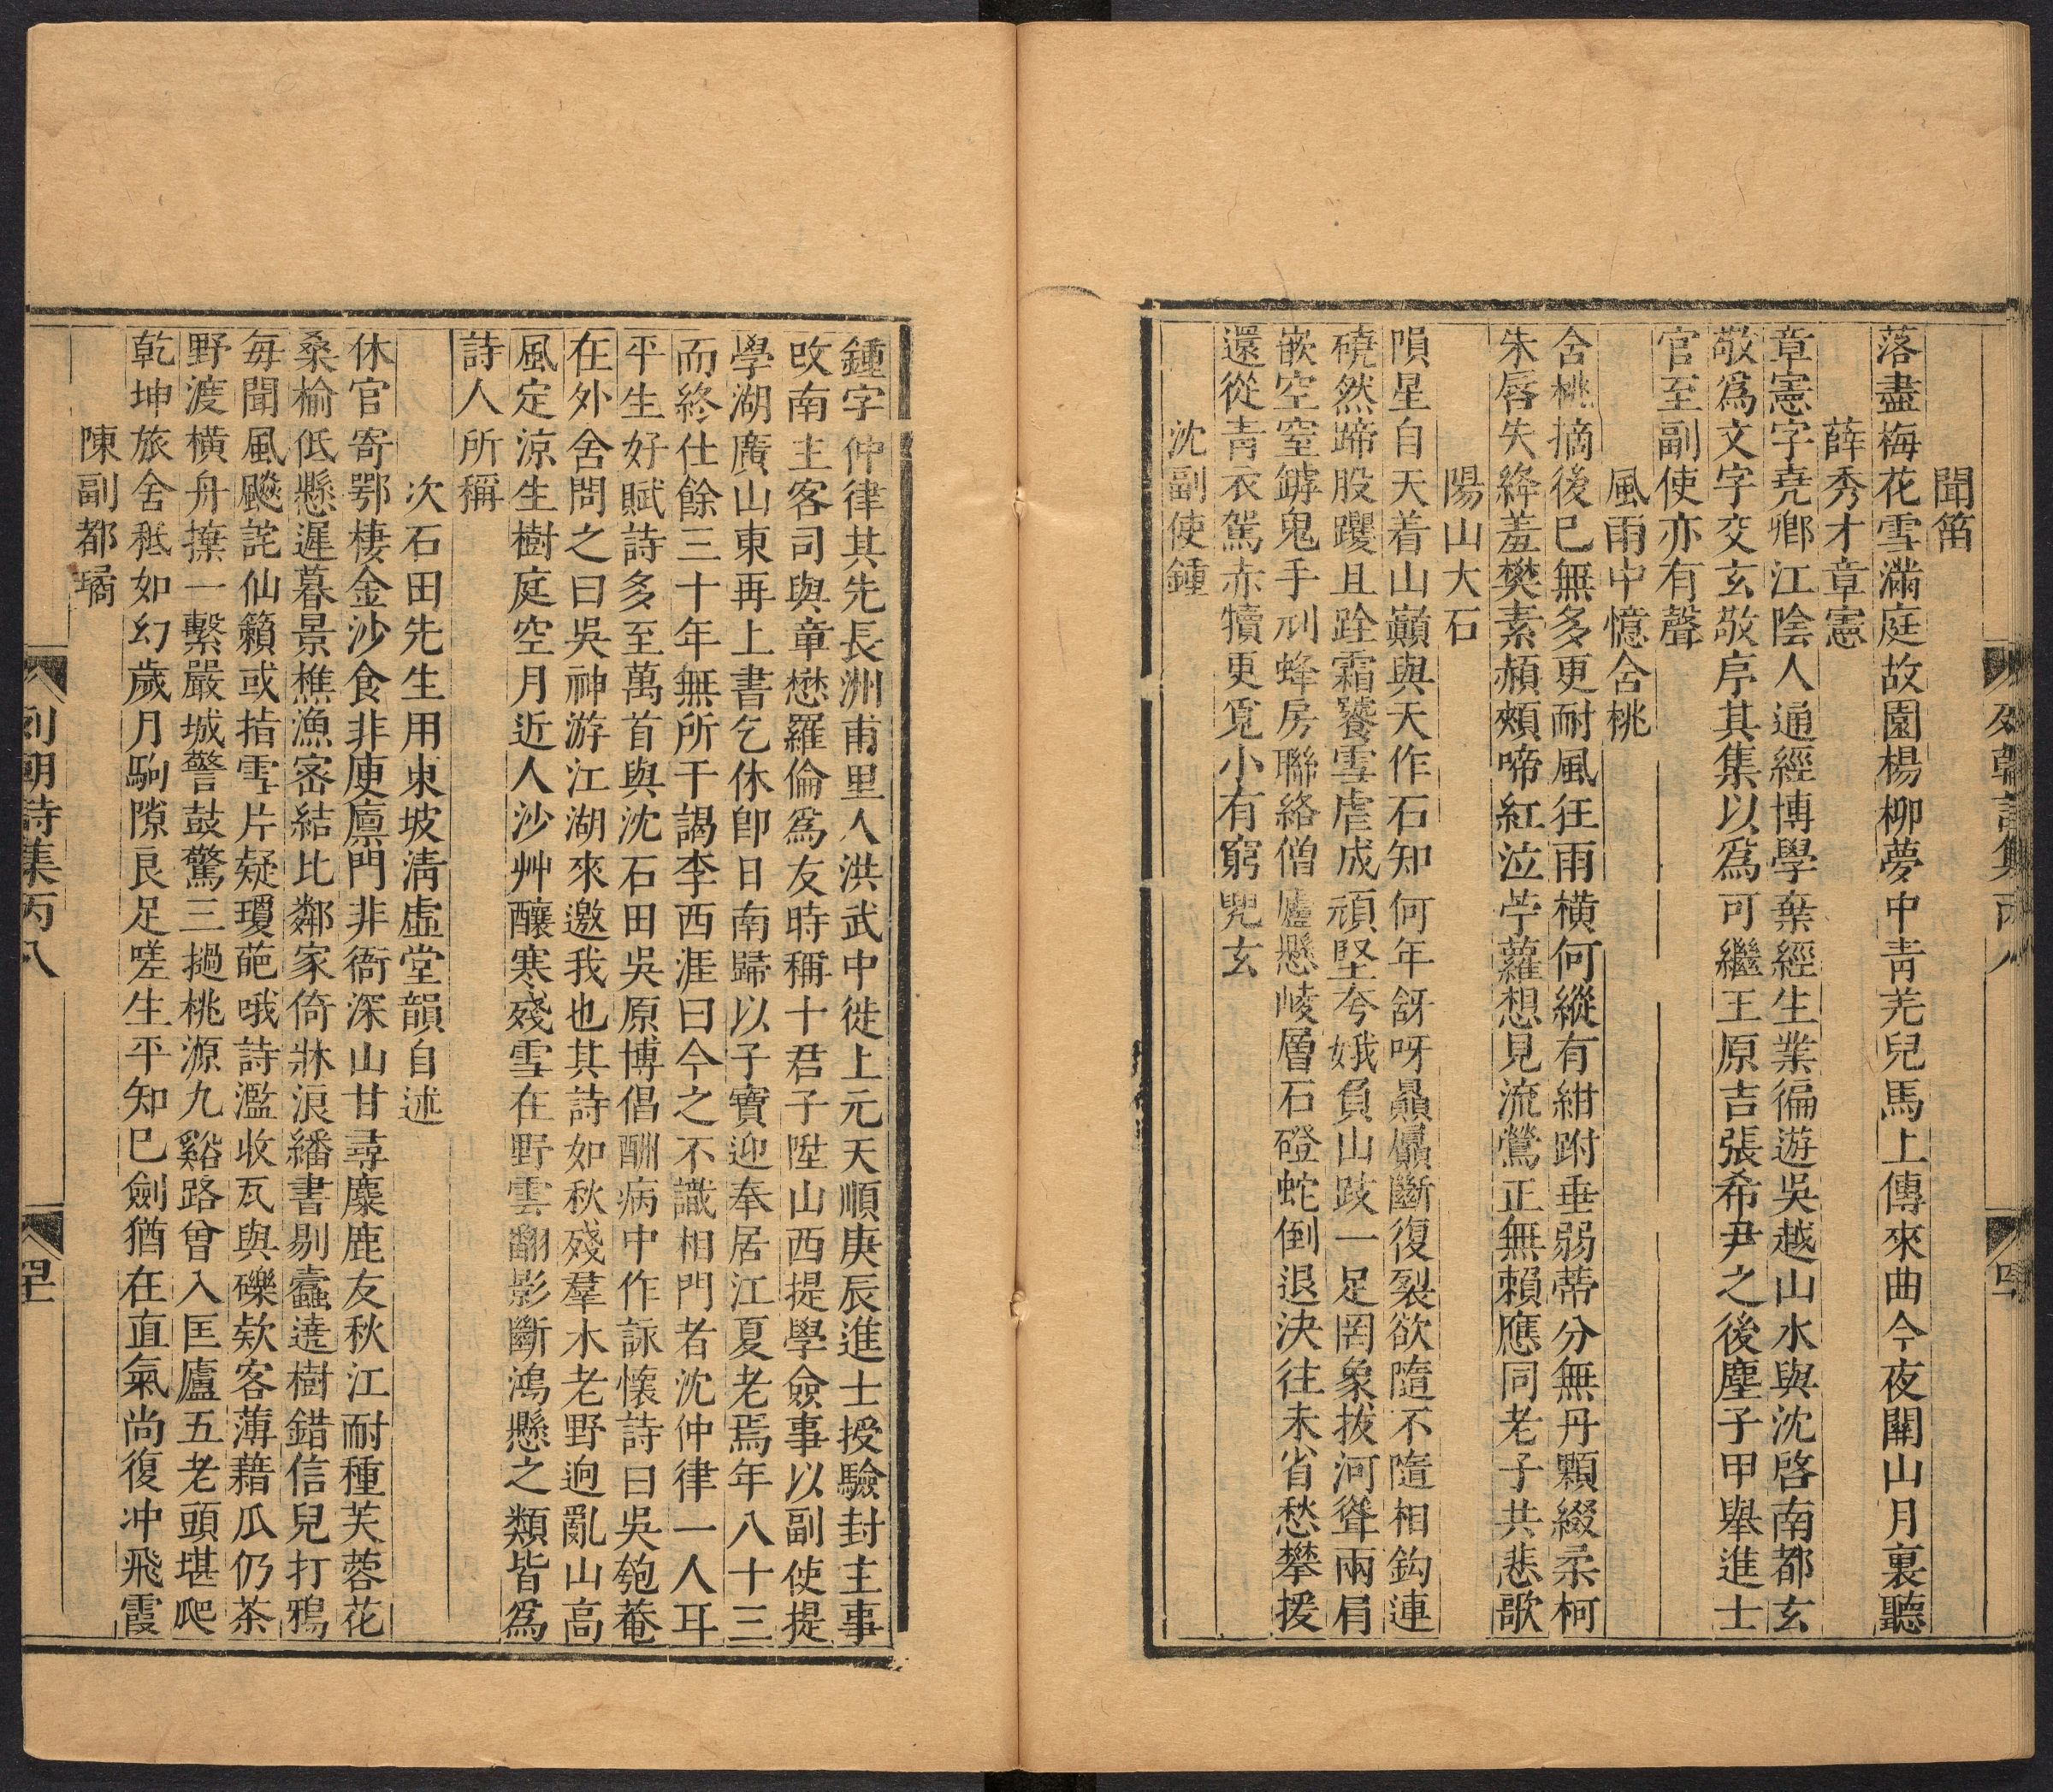 聞笛
落盡梅花雪滿庭故園楊柳夢中靑羌兒馬上傳來曲今夜關山月裏聽
薛秀才章憲
章憲字堯鄕江陰人通經博學棄經生業徧遊吳越山水與沈啓南都玄
敬爲文字交玄敬序其集以爲可繼王原吉張希尹之後塵子甲舉進士
官至副使亦有聲
風雨中憶含桃
含桃摘後已無多更耐風狂雨橫何縱有紺跗垂弱蒂分無丹顆綴柔柯
朱唇失絳羞樊素頳頰啼紅泣苧蘿想見流鶯正無賴應同老子共悲歌
陽山大石
隕星自天着山巔與天作石知何年谺呀贔屭斷復裂欲隨不隨相鈎連
磽然蹄股躩且跧霜饕雪虐成頑堅夸娥負山跂一足罔象拔河聳兩肩
嵌空窒罅鬼手刓蜂房聯絡僧廬懸崚層石磴蛇倒退決往未省愁攀援
還從靑衣駕赤犢更覓小有窮冥玄
沈副使鍾
鍾字仲律其先長洲甫里人洪武中徙上元天順庚辰進士授驗封主事
改南主客司與章懋羅倫爲友時稱十君子陞山西提學僉事以副使提
學湖廣山東再上書乞休卽日南歸以子寶迎奉居江夏老焉年八十三
而終仕餘三十年無所干謁李西涯曰今之不識相門者沈仲律一人耳
平生好賦詩多至萬首與沈石田吳原博倡酬病中作詠懷詩曰吳匏菴
在外舍問之曰吳神游江湖來邀我也其詩如秋殘羣木老野迥亂山高
風定涼生樹庭空月近人沙艸釀寒殘雪在野雲翻影斷鴻懸之類皆爲
詩人所稱
次石田先生用東坡淸虛堂韻自述
休官寄鄂棲金沙食非庾廩門非衙深山甘尋麋鹿友秋江耐種芙蓉花
桑榆低懸遲暮景樵漁密結比鄰家倚牀浪繙書剔蠹遶樹錯信兒打鴉
每聞風颷詫仙籟或指雪片疑瓊葩哦詩濫收瓦與礫欸客薄藉瓜仍茶
野渡橫舟擽一繫嚴城警鼓驚三撾桃源九谿路曾入匡廬五老頭堪爬
乾坤旅舍秪如幻歲月駒隙良足嗟生平知已劍猶在直氣尚復冲飛霞
陳副都璚
列朝詩集丙八